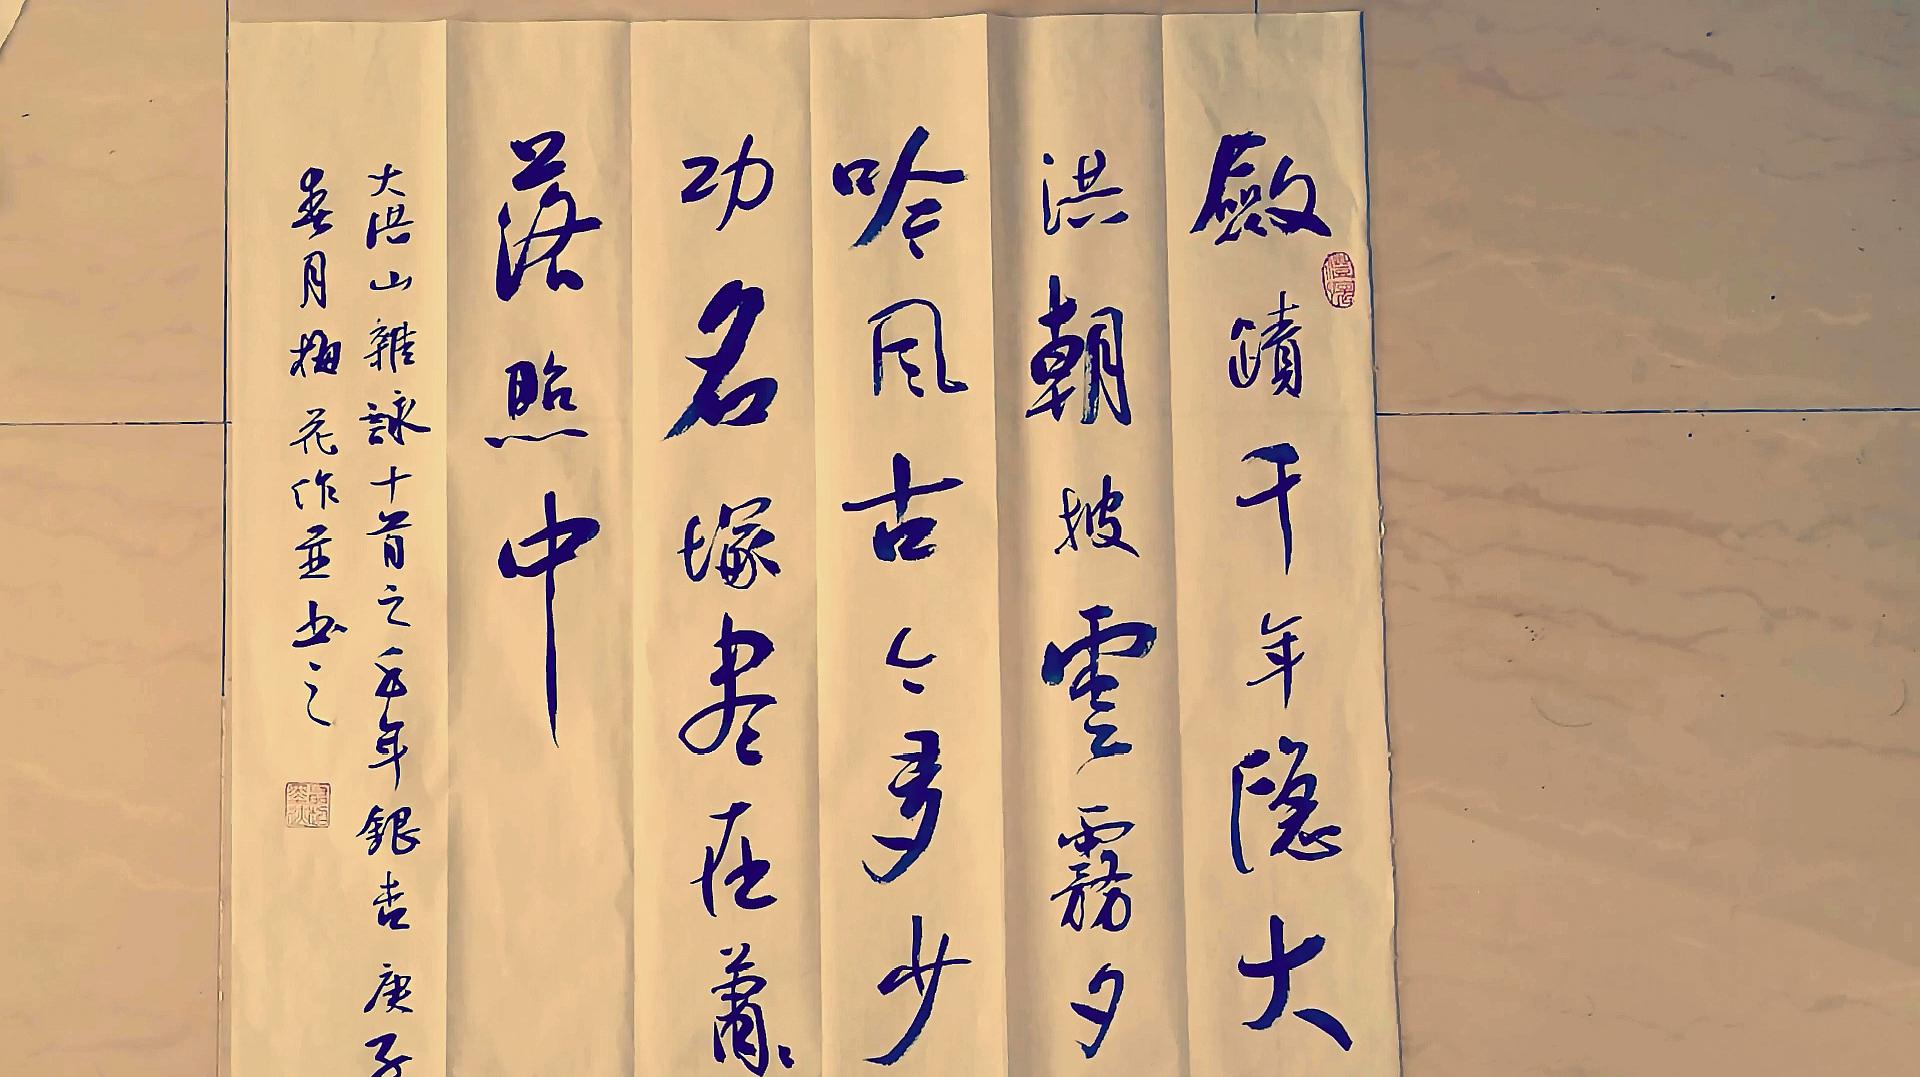 斂蹟千年隐大
洪朝披雲霧夕
吟風古今多少
功名塚尽在蕭
落照中
大洪山雜詠十首之五年銀杏庚子
春月梅花作並书之